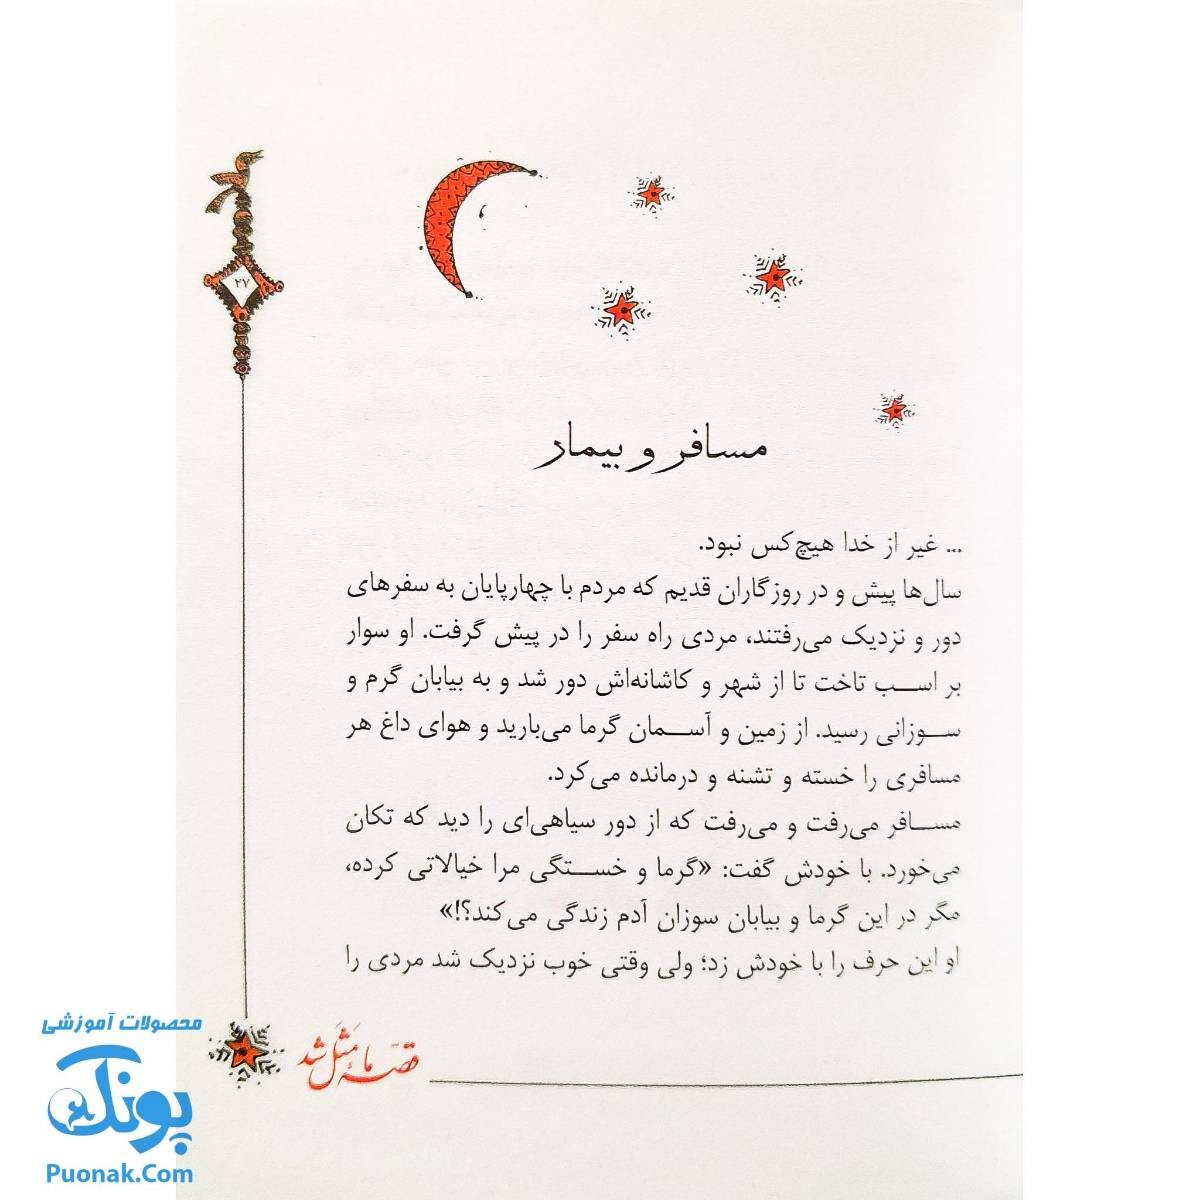 ۲۷
مسافر و بیمار
... غیر از خدا هیچ‌کس نبود.
سال‌ها پیش و در روزگاران قدیم که مردم با چهارپایان به سفرهای
دور و نزدیک می‌رفتند، مردی راه سفر را در پیش گرفت. او سوار
بر اسب تاخت تا از شهر و کاشانه‌اش دور شد و به بیابان گرم و
سوزانی رسید. از زمین و آسمان گرما می‌بارید و هوای داغ هر
مسافری را خسته و تشنه و درمانده می‌کرد.
مسافر می‌رفت و می‌رفت که از دور سیاهی‌ای را دید که تکان
می‌خورد. با خودش گفت: «گرما و خستگی مرا خیالاتی کرده،
مگر در این گرما و بیابان سوزان آدم زندگی می‌کند؟!»
او این حرف را با خودش زد؛ ولی وقتی خوب نزدیک شد مردی را
قصه ما مَثَل شد
محصولات آموزشی
پونک
Puonak.Com